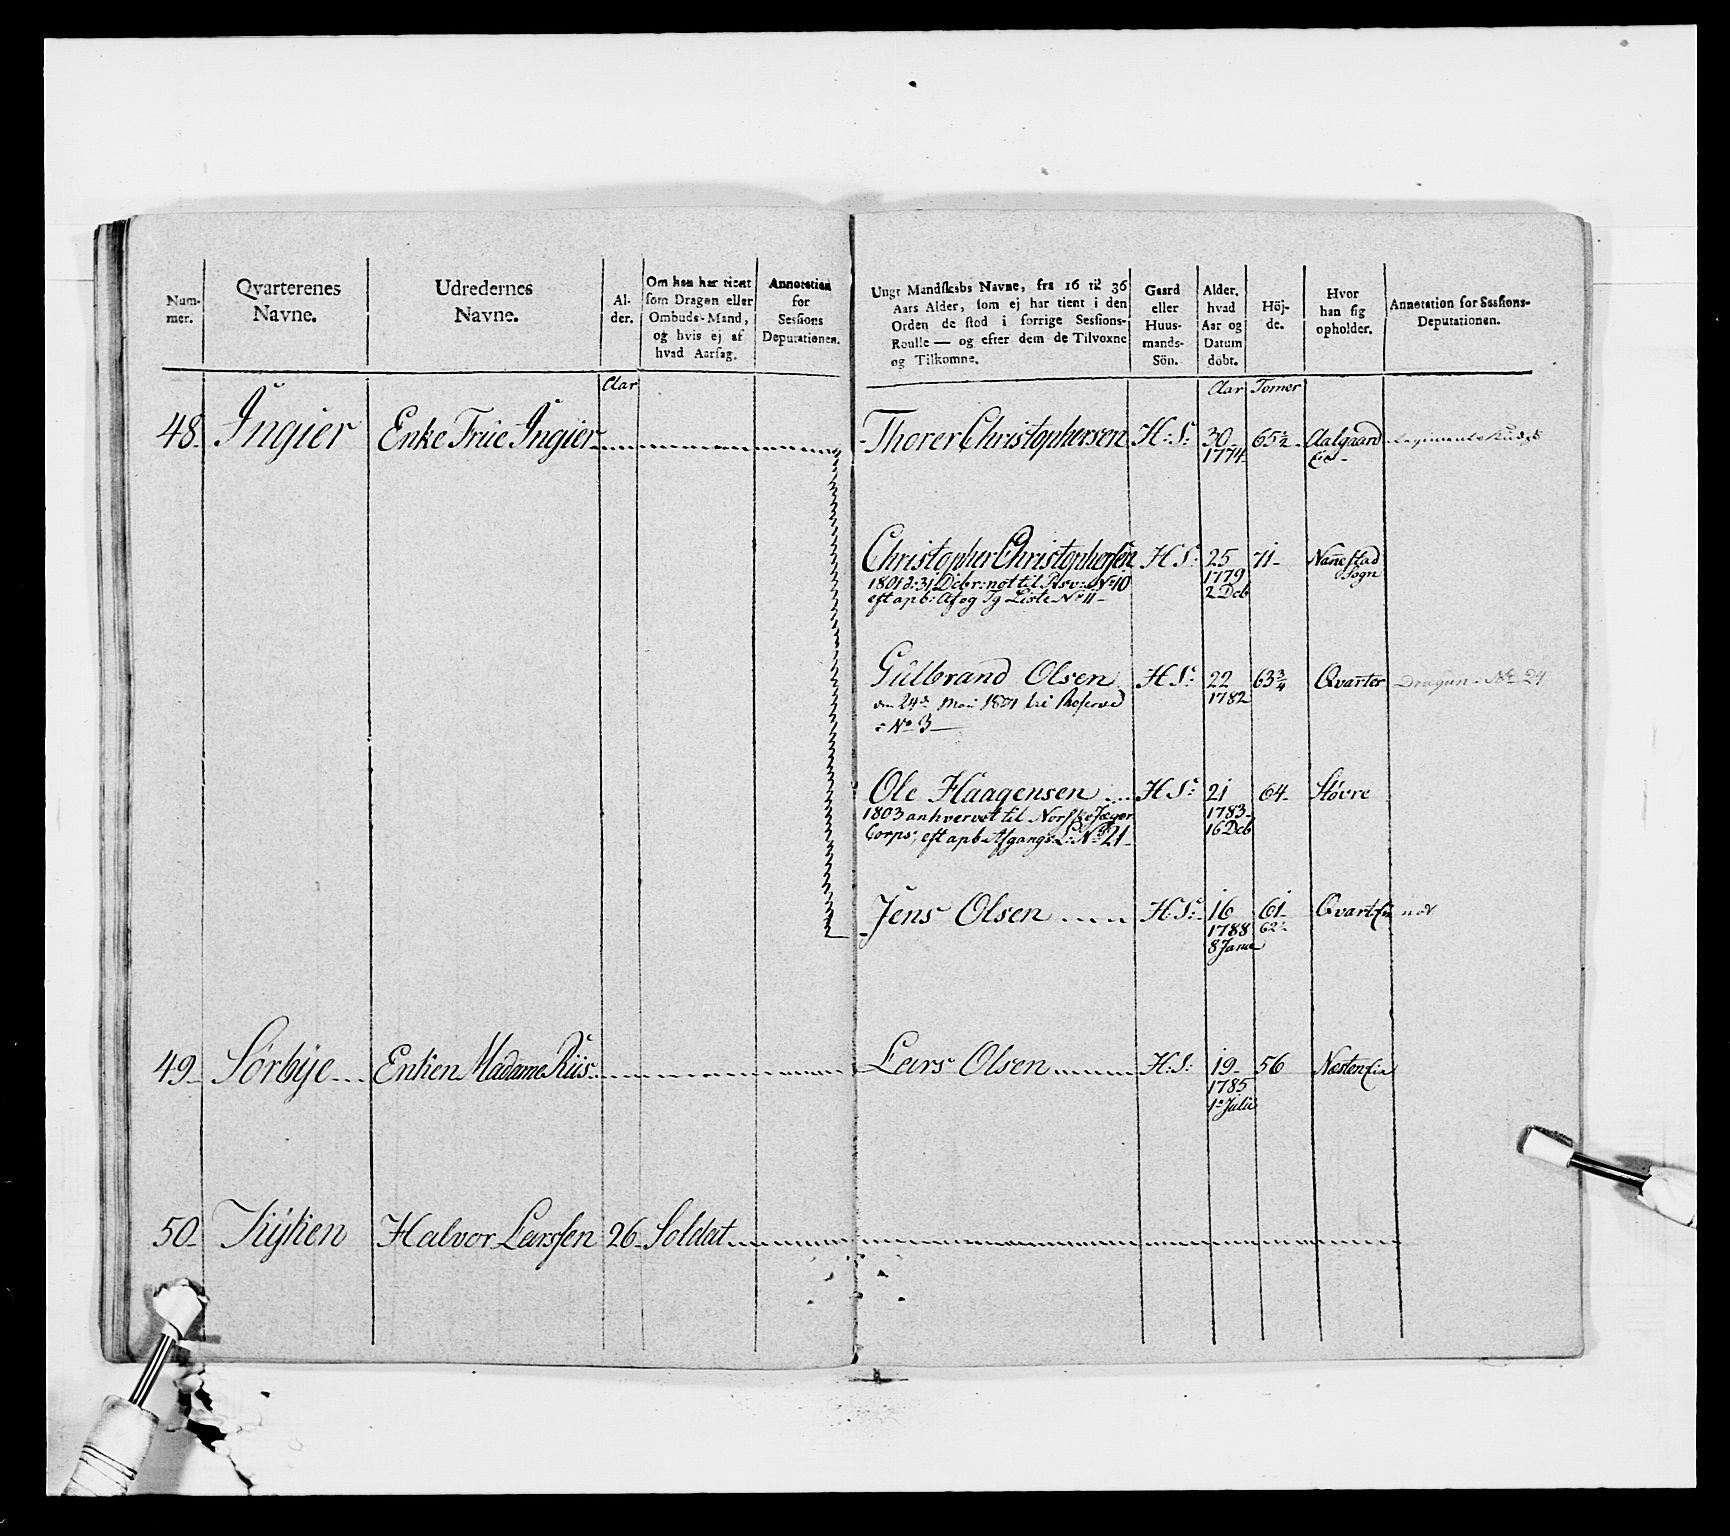 Num-
mer.
Qvarterenes
Navne.
Udredernes
Navne.
Al-
der.
Om han har tient
som Dragon eller
Ombuds-Mand,
og hvis ej af
hvad Aarsag.
Annotation
for
Sessions
Deputationen.
Ungt Mandskabs Navne, fra 16 til 36
Aars Alder, som ej har tient i den
Orden de stod i forrige Sessions-
Roulle — og efter dem de Tilvoxne
og Tilkomne.
Gaard
eller
Huus-
mands-
Sön.
Alder,
hvad
Aar og
Datum
döbt.
Höj-
de.
Hvor
han sig
opholder.
Annotation for Sessions-
Deputationen.
Aar
Aar Tomer
48 Ingier Enke Frue Ingier Thorer Christophersen H: S: 30 65½ Aalgaard
1774 Eie
Christopher Christophersen H S: 25 71 Nannestad
1801 d: 31 Decbr: not til Resv: No 10 1779 Sogn
eft apb: Af og Tg Liste No 11 2 Deb
Gulbrand Olsen H S: 22 63¾ Qvarter Dragun No 24
den 24d Mai 1804 til Reserved 1782
No 3
Ole Haagensen H S: 21 64 Støvre
1803 anhvervet til Norske Jæger 1783
Corps, eft apb Afgangs L: No 21 16 Deb
Jens Olsen H S: 16 61 Qvart Eie not
1788 62
8 Janu
49 Sørbye Enken Madame Riis Lars Olsen H: S: 19 56 Næsten Eie
1785
1e Julii
50 Halvor Larssen 26 Soldat